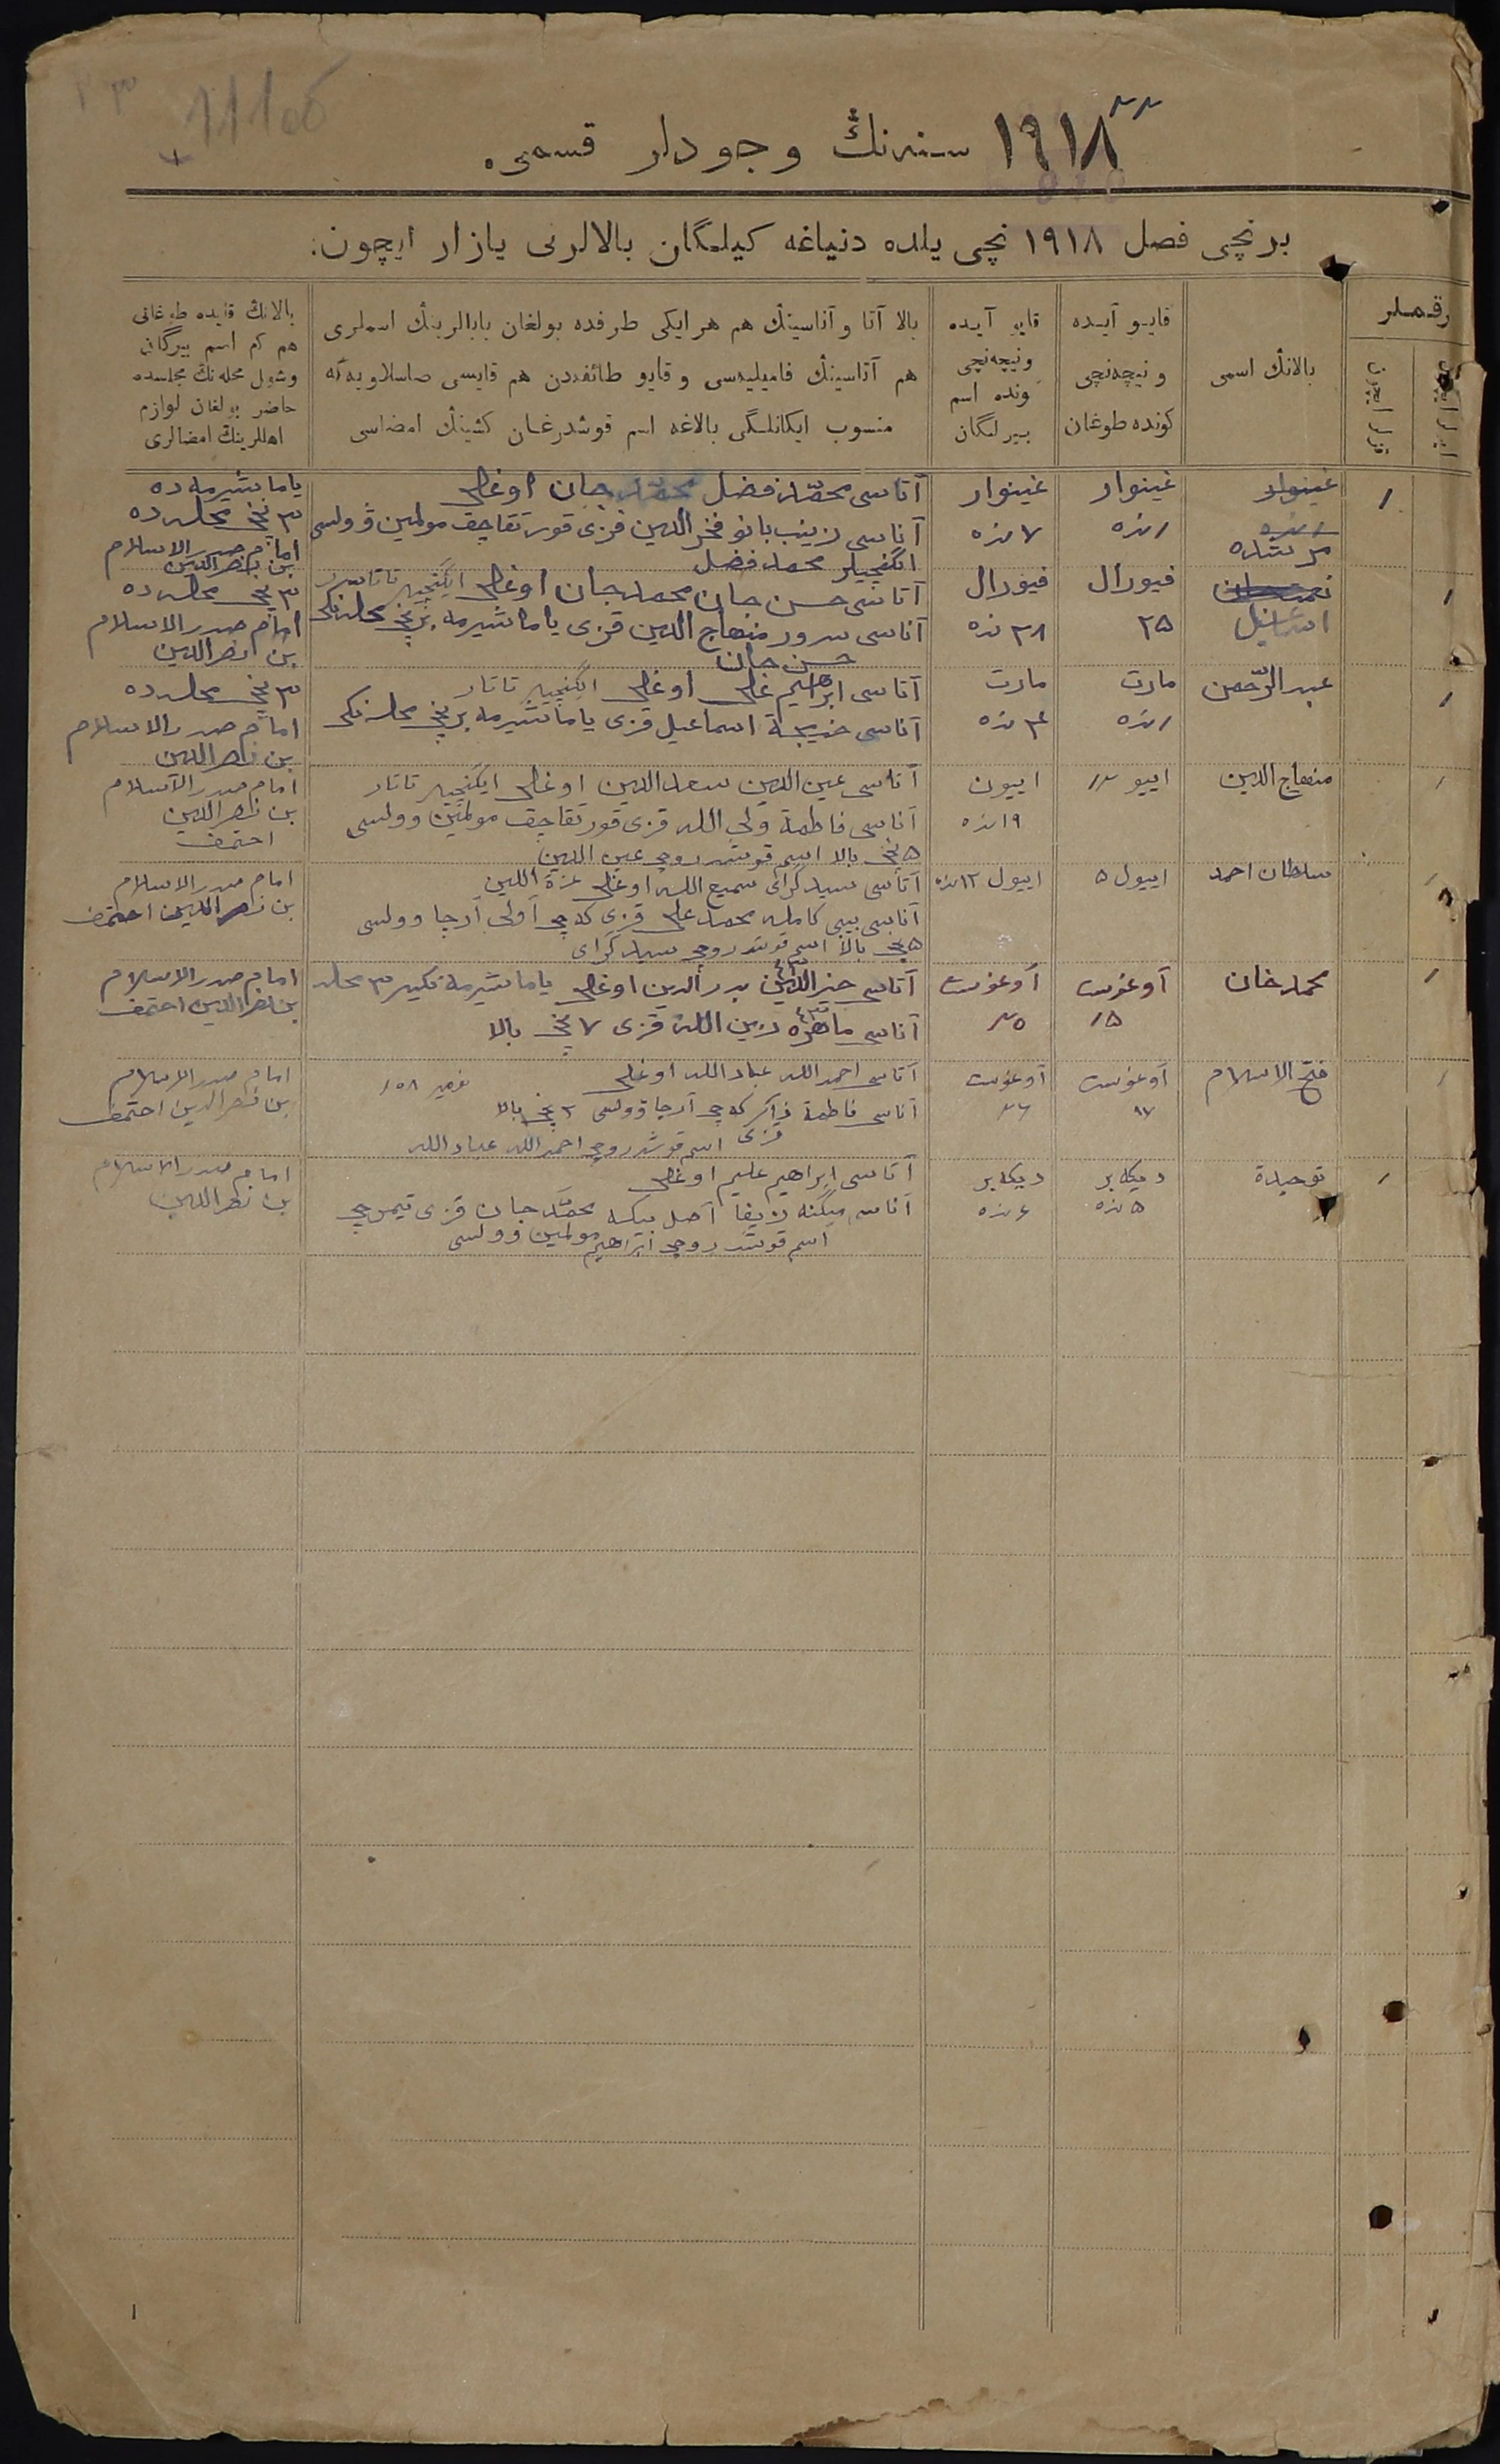 ١٩١٨ سنه‌نڭ وجودلر قسمی.
برنچی فصل ١٩١٨ نچی یلده دنیاغه کیلگان بالالرنی یازار ایچون.
رقملر
بالانڭ اسمی
قایو آیده
ونیچه‌نچی
کونده طوغان
قایو آیده
ونیچه‌نچی
کونده اسم
بیرلگان
بالا آتا و آناسینڭ هم هر ایکی طرفده بولغان بابالرینڭ اسملری
هم آتاسینڭ فامیلیه‌سی و قایو طائفه‌دن هم قایسی صاسلاویه‌گه
منسوب ایکانلگی بالاغه اسم قوشدرغان کشینڭ امضاسی
بالانڭ قایده طوغانی
هم کم اسم بیرگانی
وشول محله‌نڭ مجلسده
حاضر بولغان لوازم
اهللرینڭ امضالری
١
غینوار
١ نده
غینوار
٧ نده
آتاسی محمد فضل محمد جان اوغلی
آناسی زینب بانو فخر الدین قزی قورتقاچق مولمین وولسی
ایگنچیلر محمد فضل
یاماشیرمه ده
٣ نچی محله ده
امام صدر الاسلام
بن نصر الدین
١
اسماعیل
فیورال
٢٥
فیورال
٢٨ نده
آتاسی حسن جان محمد جان اوغلی ایگنچیلر تاتار
آناسی سرور منهاج الدین قزی یاماشیرمه برنچی محله نکی
حسن جان
٣ نچی محله ده
امام صدر الاسلام
بن نصر الدین
١
عبد الرحمن
مارت
١ نده
مارت
٤ نده
آتاسی ابراهیم علی اوغلی ایگنچیلر تاتار
آناسی خدیجة اسماعیل قزی یاماشیرمه برنچی محله نکی
٣ نچی محله ده
امام صدر الاسلام
بن نصر الدین
١
منهاج الدین
اییون
١٩ نده
آتاسی عین الدین سعد الدین اوغلی ایگنچیلر تاتار
آناسی فاطمة ولی الله قزی قورتقاچق مولمین وولسی
٥ نچی بالا اسم قوشدروچی عین الدین
امام صدر الاسلام
بن نصر الدین
احتمف
سلطان احمد
اییول ٥
اییول ١٢ نده
آتاسی سید کرای سمیع الله اوغلی عزة الدین
آناسی بیبی کاملە محمد علی قزی کە چی آولی آرچا وولسی
٥ نچی بالا اسم قوشدروچی سید کرای
امام صدر الاسلام
بن نصر الدین احتمف
١
محمد خان
آوغوست
١٥
آوغوست
٢٥
آتاسی خیر الدین بدر الدین اوغلی یاماشیرمه نکیر ٣ محله
آناسی ماهره زین الله قزی ٧ نچی بالا
امام صدر الاسلام
بن نصر الدین احتمف
١
فتح الاسلام
آوغوست
١٧
آوغوست
٢٦
آتاسی احمد الله عباد الله اوغلی
آناسی فاطمة ذاکر قزی کە چی آرچا وولسی ٢ نچی بالا
اسم قوشدروچی احمد الله عباد الله
امام صدر الاسلام
بن نصر الدین احتمف
١
توحیدة
دیکابر
٥ نده
دیکابر
٦ نده
آتاسی ابراهیم علیم اوغلی
آناسی اصل بیکه محمد جان قزی
اسم قوشدروچی ابراهیم مولمین وولسی
امام صدر الاسلام
بن نصر الدین